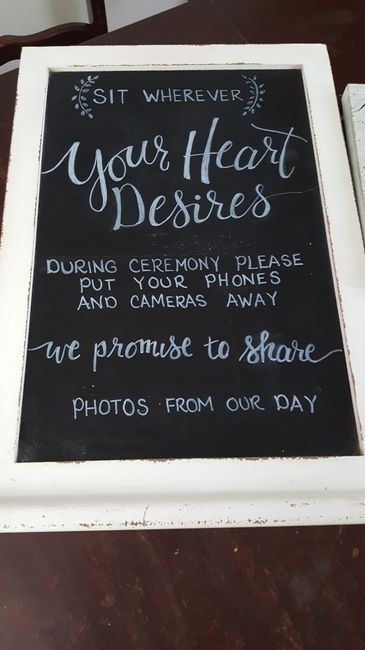 SIT WHEREVER
Your Heart
Desires
DURING CEREMONY PLEASE
PUT YOUR PHONES
AND CAMERAS AWAY
we promise to share
PHOTOS FROM OUR DAY